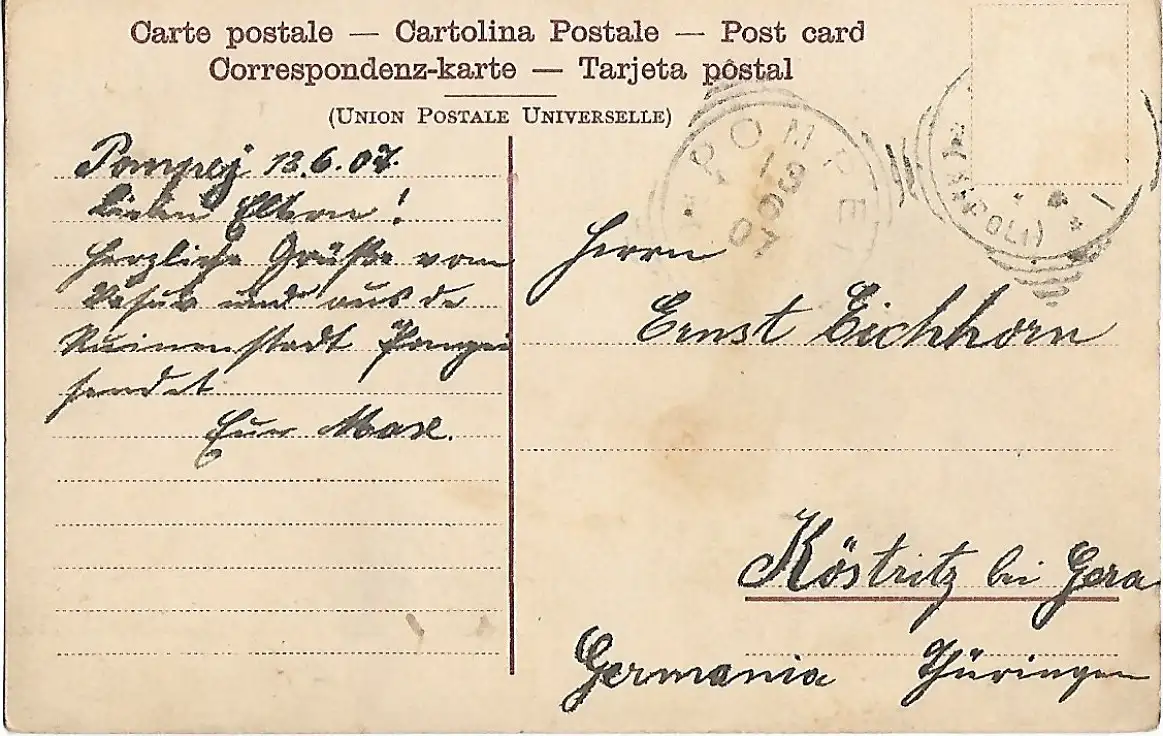 Carte postale — Cartolina Postale — Post card
Correspondenz-karte — Tarjeta postal
(UNION POSTALE UNIVERSELLE)
Pompej 13.6.07.
Lieben Eltern!
Herzliche Grüße vom
Vesuv und aus de
Ruinenstadt Pompei
sendet
Euer Max.
POMPEI
13
07
(NAPOLI)
Herrn
Ernst Eichhorn
Köstritz bei Gera
Germania Thüringen